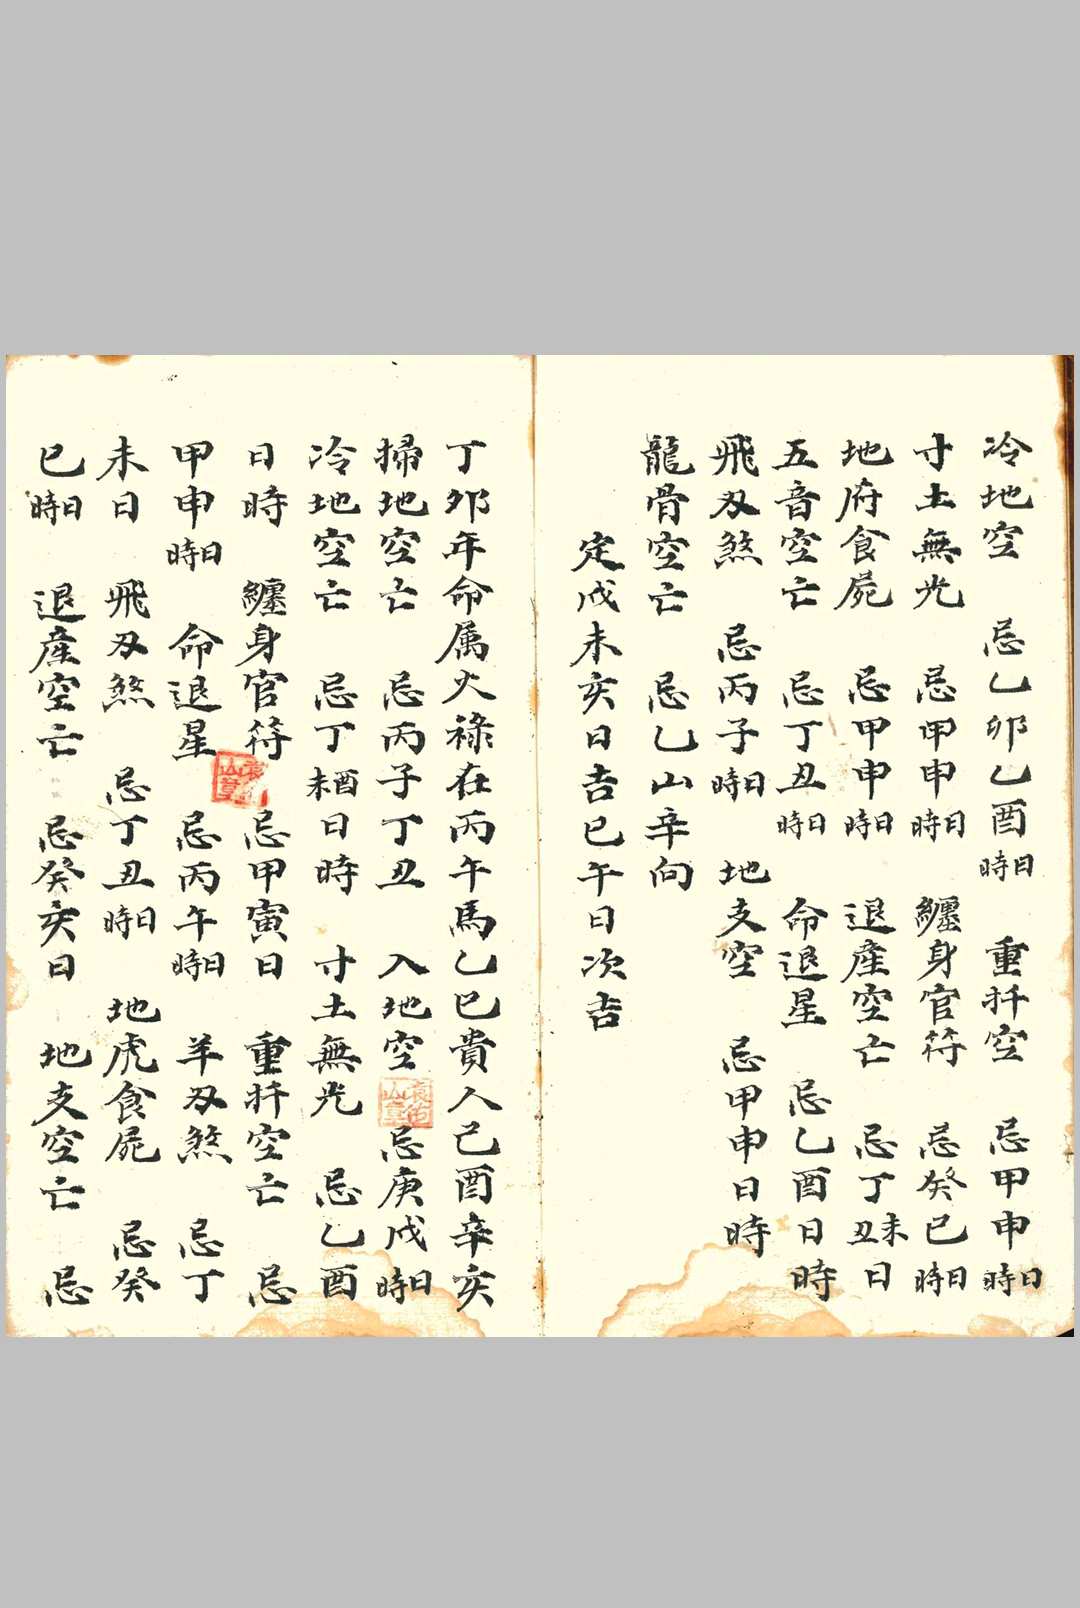 冷地空　忌乙卯乙酉日時　重扦空　忌甲申日時
寸土無光　忌甲申日時　纏身官符　忌癸巳日時
地府食屍　忌甲申日時　退産空亡　忌丁未丑日
五音空亡　忌丁丑日時　命退星　忌乙酉日時
飛刄煞　忌丙子日時　地支空　忌甲申日時
龍骨空亡　忌乙山辛向
定戊未亥日吉巳午日次吉
丁卯年命属火祿在丙午馬乙巳貴人己酉辛亥
掃地空亡　忌丙子丁丑　入地空　忌庚戌日時
冷地空亡　忌丁酉未日時　寸土無光　忌乙酉
日時　纏身官符　忌甲寅日　重扦空亡　忌
甲申日時　命退星　忌丙午日時　羊刄煞　忌丁
未日　飛刄煞　忌丁丑日時　地虎食屍　忌癸
巳日時　退産空亡　忌癸亥日　地支空亡　忌